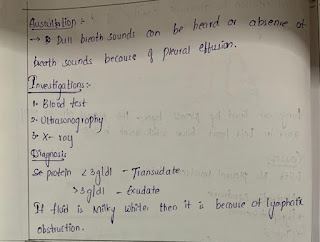 Auscultation :-
→ Dull breath sounds can be heard or absence of
breath sounds because of pleural effusion.
Investigations:-
1. Blood test
2. Ultrasonography
3. X-ray
Diagnosis
Se protein < 3g/dl - Transudate
> 3g/dl - Exudate
If fluid is Milky white, then it is because of lymphatic
obstruction.